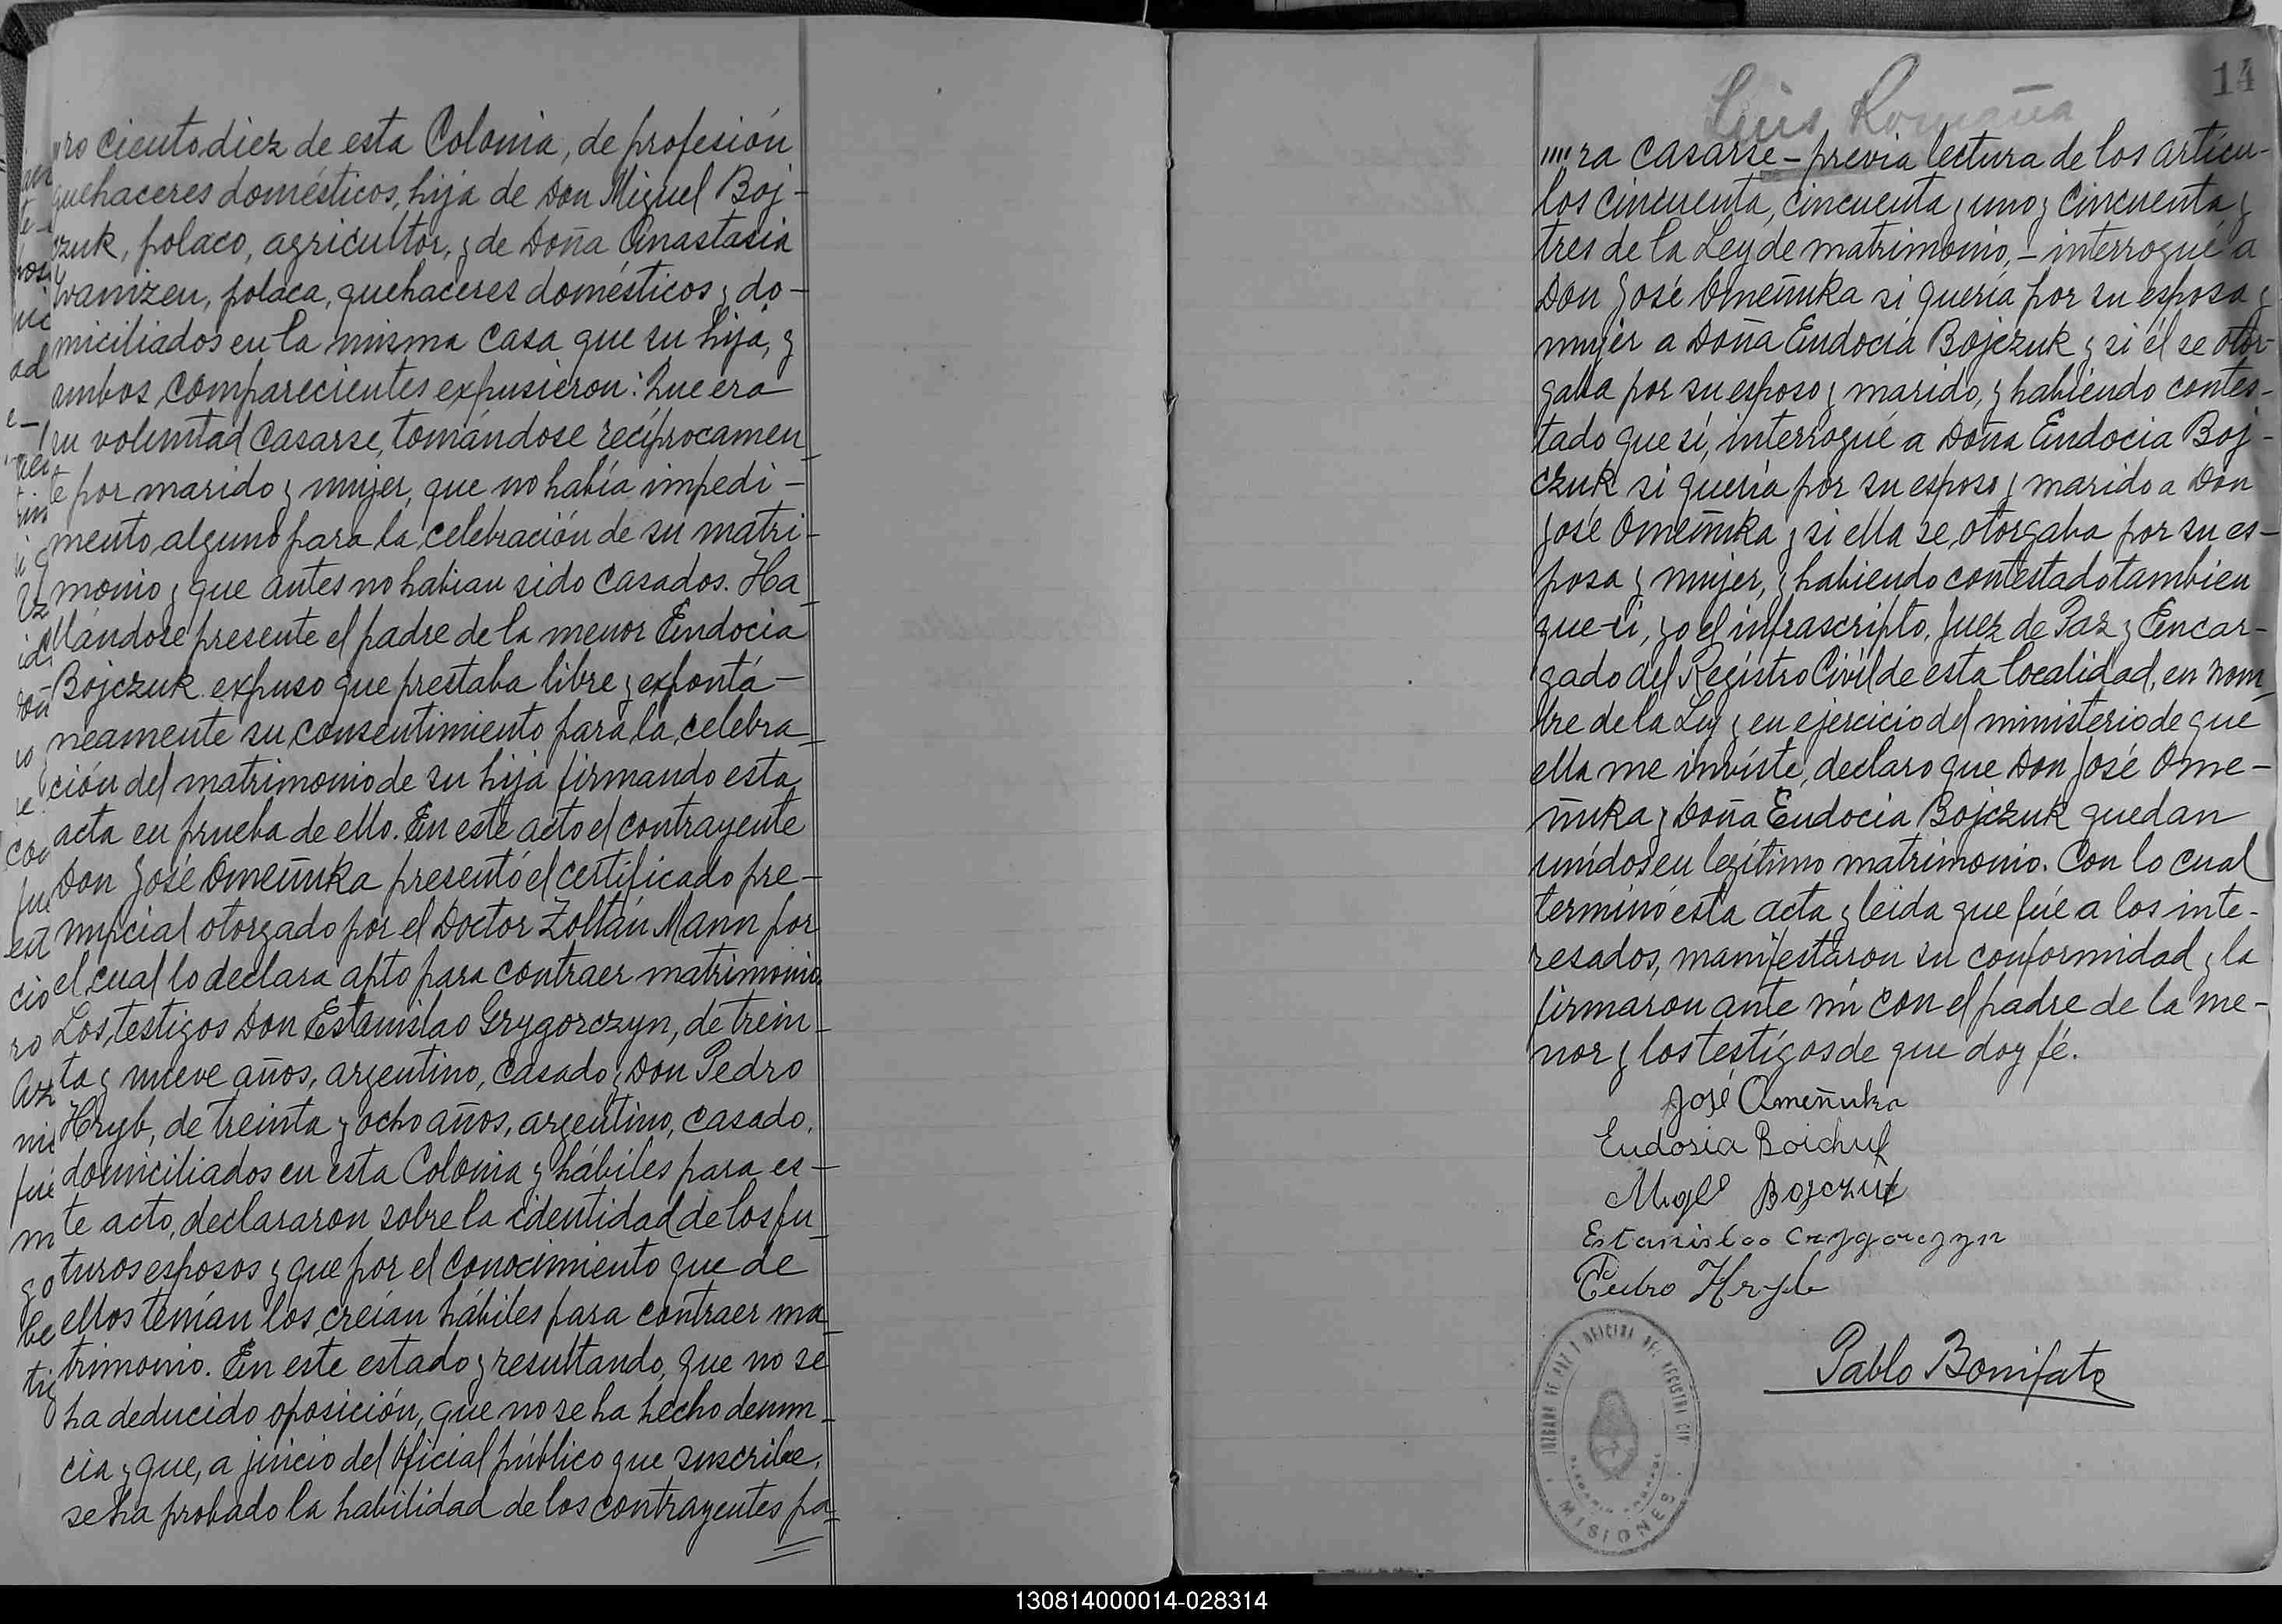 ro ciento diez de esta Colonia, de profesión
quehaceres domésticos, hija de Don Miguel Boj-
czuk, polaco, agricultor, y de Doña Anastasia
Iwanizen, polaca, quehaceres domésticos y do-
miciliados en la misma casa que su hija, y
ambos comparecientes expusieron: Que era
su voluntad casarse, tomándose recíprocamen_
te por marido y mujer, que no había impedi-
mento alguno para la celebración de su matri-
monio y que antes no habian sido casados. Ha_
llándose presente el padre de la menor Eudocia
Bojczuk expuso que prestaba libre y espontá-
neamente su consentimiento para la celebra_
ción del matrimonio de su hija firmando esta
acta en prueba de ello. En este acto el contrayente
Don José Omeñuka presentó el certificado pre-
nupcial otorgado por el Doctor Zoltán Mann por
el cual lo declara apto para contraer matrimonio.
Los testigos Don Estanislao Grygorczyn, de trein-
ta y nueve años, argentino, casado y Don Pedro
Hryb, de treinta y ocho años, argentino, casado,
domiciliados en esta Colonia y hábiles para es-
te acto, declararon sobre la identidad de los fu_
turos esposos y que por el conocimiento que de
ellos tenían los creían hábiles para contraer ma_
trimonio. En este estado y resultando, que no se
ha deducido oposición, que no se ha hecho denun_
cia y que, a juicio del Oficial público que suscribe,
se ha probado la habilidad de los contrayentes pa=
14
Luis Romaña
""ra casarse - previa lectura de los artícu-
los cincuenta, cincuenta y uno y cincuenta y
tres de la Ley de matrimonio, - interrogué a
Don José Omeñuka si quería por su esposa y
mujer a Doña Eudocia Bojczuk y si él se otor-
gaba por su esposo y marido, y habiendo contes-
tado que sí, interrogué a Doña Eudocia Boj-
czuk si quería por su esposo y marido a Don
José Omeñuka y si ella se otorgaba por su es-
posa y mujer, y habiendo contestado tambien
que sí, yo el infrascripto, Juez de Paz y Encar-
gado del Registro Civil de esta localidad, en nom_
bre de la Ley y en ejercicio del ministerio de que
ella me inviste, declaro que Don José Ome-
ñuka y Doña Eudocia Bojczuk quedan
unidos en legítimo matrimonio. Con lo cual
terminó esta acta y leida que fué a los inte-
resados, manifestaron su conformidad y la
firmaron ante mí con el padre de la me-
nor y los testigos de que doy fé.
José Omeñuka
Eudosia Boichuk
Miguel Bojczuk
Estanislao Crygorczyn
Pedro Hryb
Pablo Bonifato
JUZGADO DE PAZ Y OFICINA DEL REGISTRO CIVIL
MISIONES
130814000014-028314